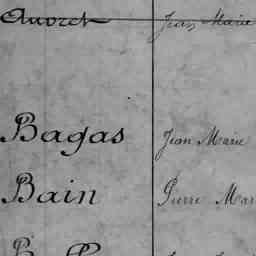 Auvret Jean Marie
Bagas Jean Marie
Bain Pierre Mar